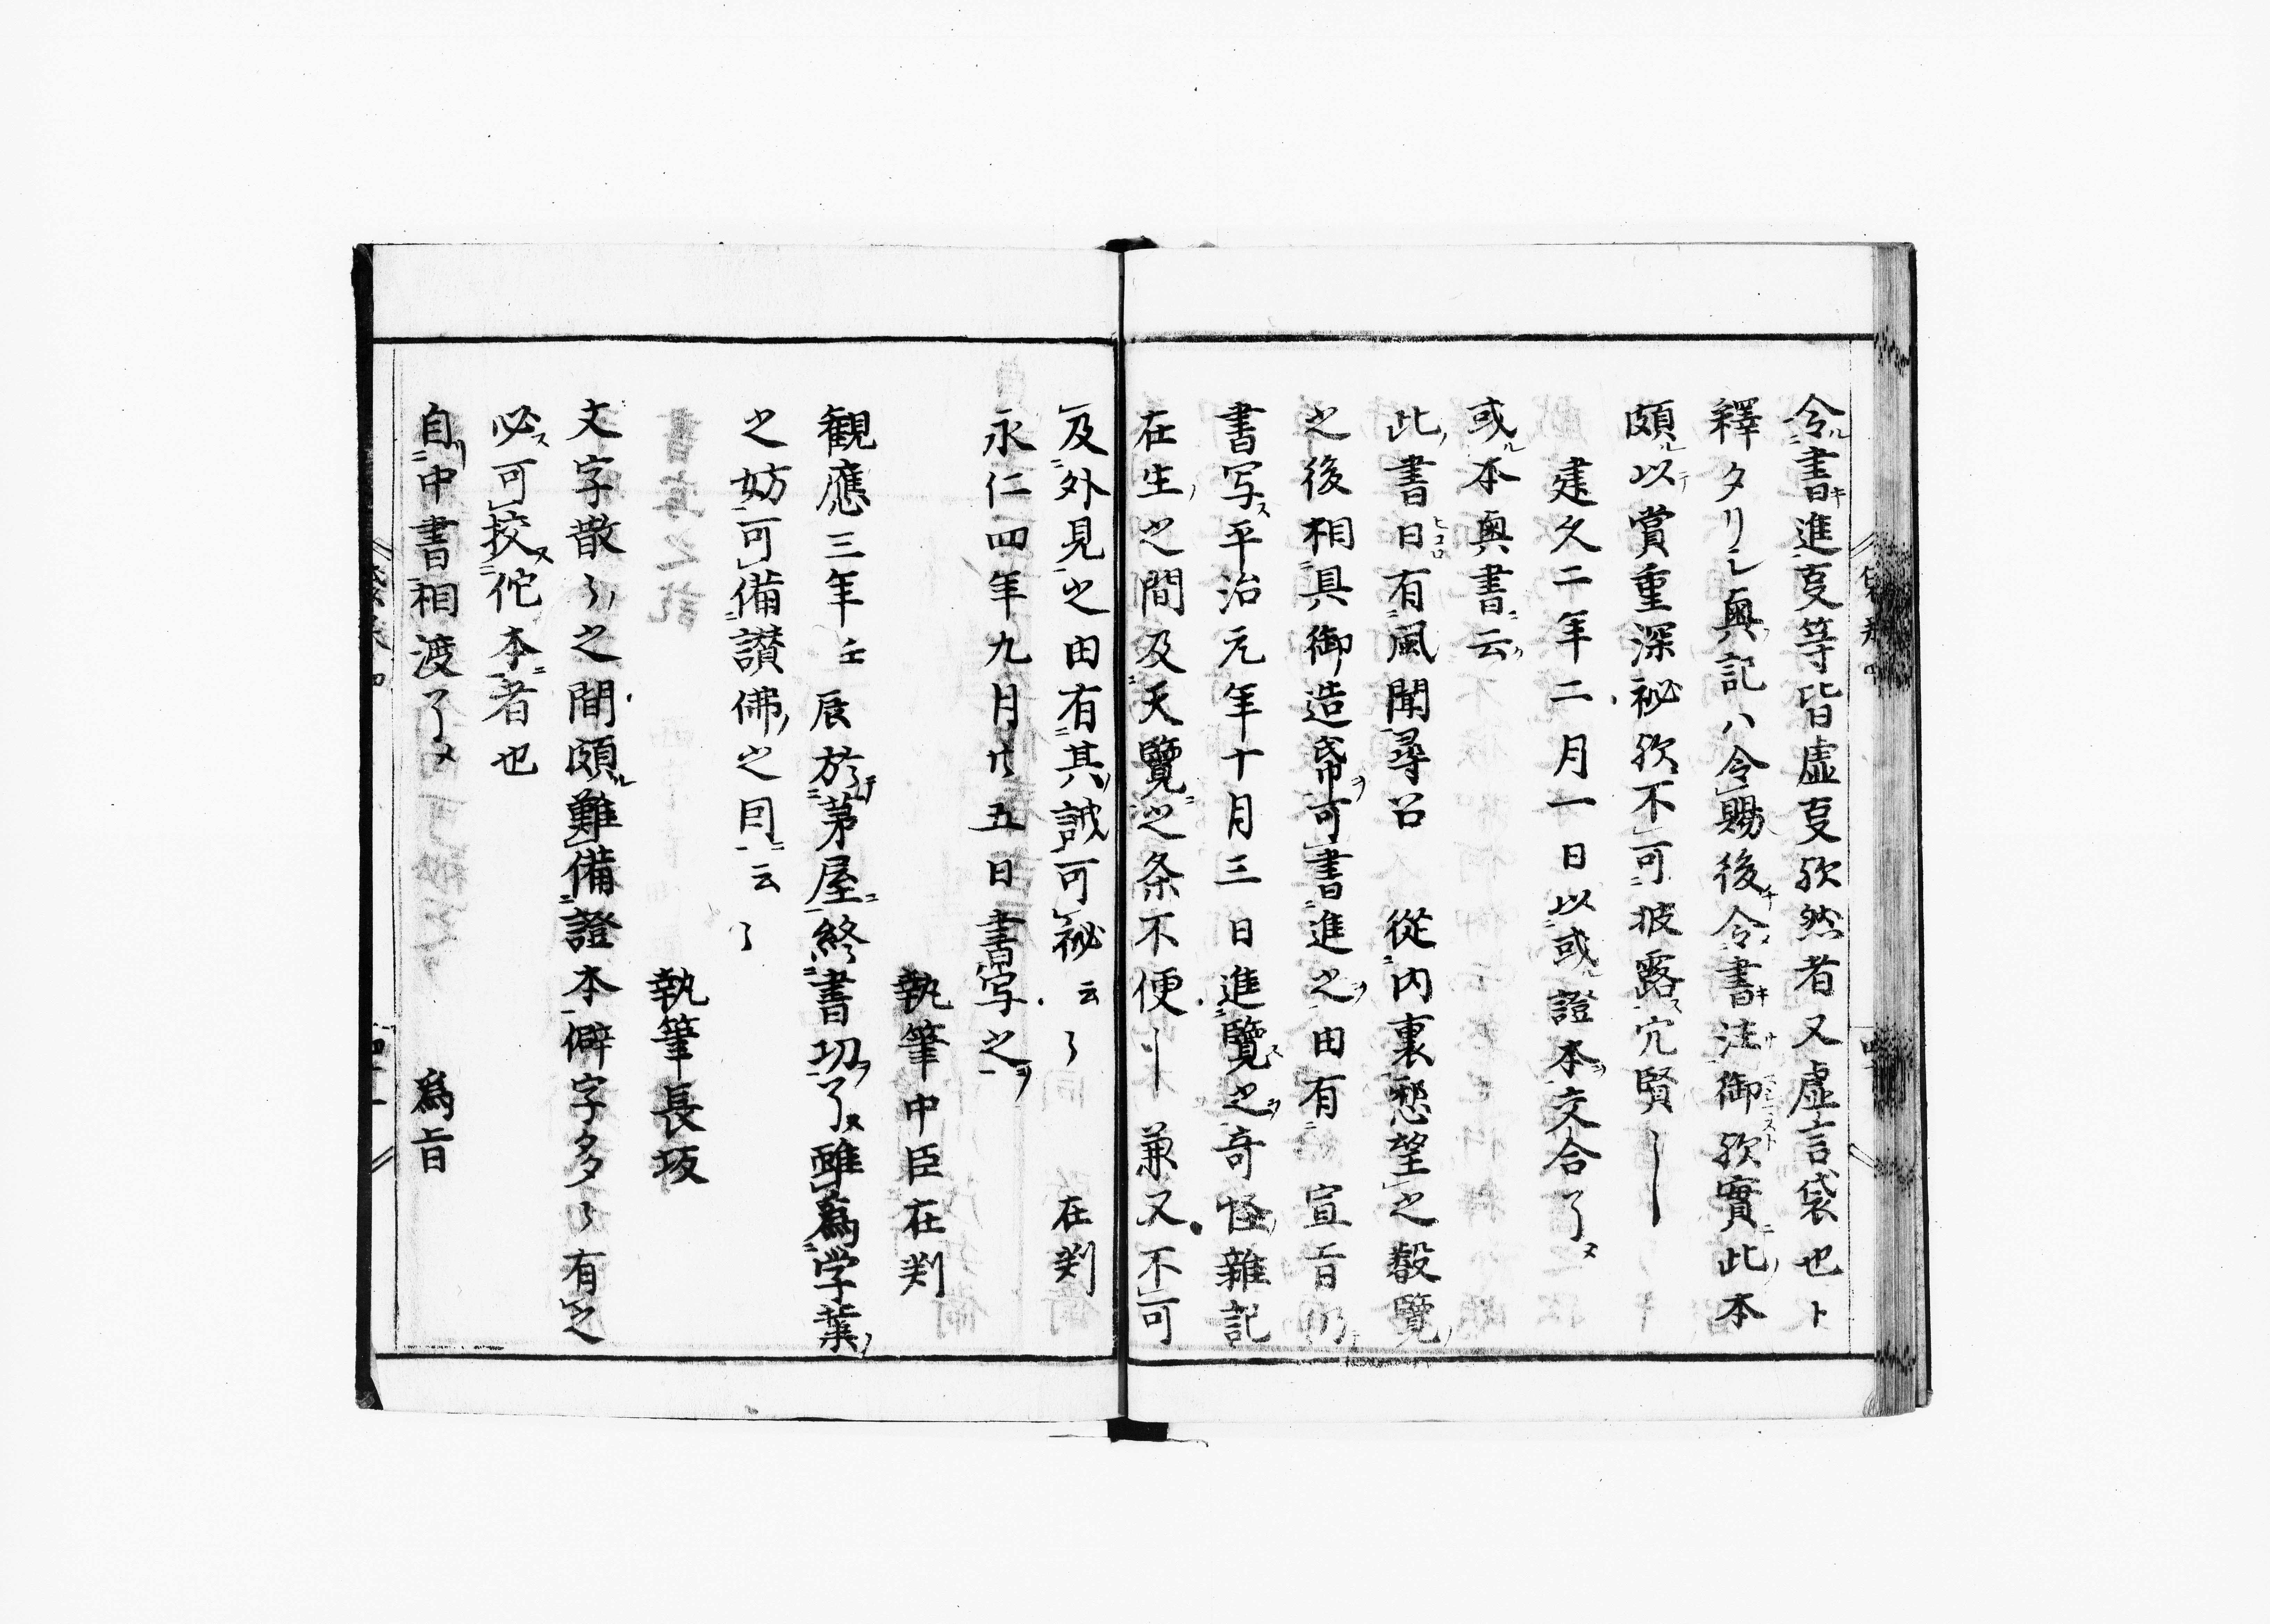 令書進㕝等皆虚㕝欤然者又虚言袋也ト
釋タリシ奥記ハ令賜後令書注御欤實此本
頗以賞重深祕欤不可披露穴賢〳〵
建久二年二月一日以或證本交合了
或本奥書云
此書日有風聞尋召 從内裏愁望之叡覽
之後相具御造帋可書進之由有 宣旨仍
書写平治元年十月三日進覽之奇怪雜記
在生之間及天覽之条不便〳〵 兼又不可
及外見之由有其誡可祕云〻 在判
永仁四年九月廿五日書写之
執筆中臣在判
観應三年壬辰於茅屋終書功了雖為学葉
之妨可備讃佛之因云〻
執筆長坂
文字散〻之間頗難備證本僻字多〻有之
必可挍佗本者也
自中書相渡了 為旨